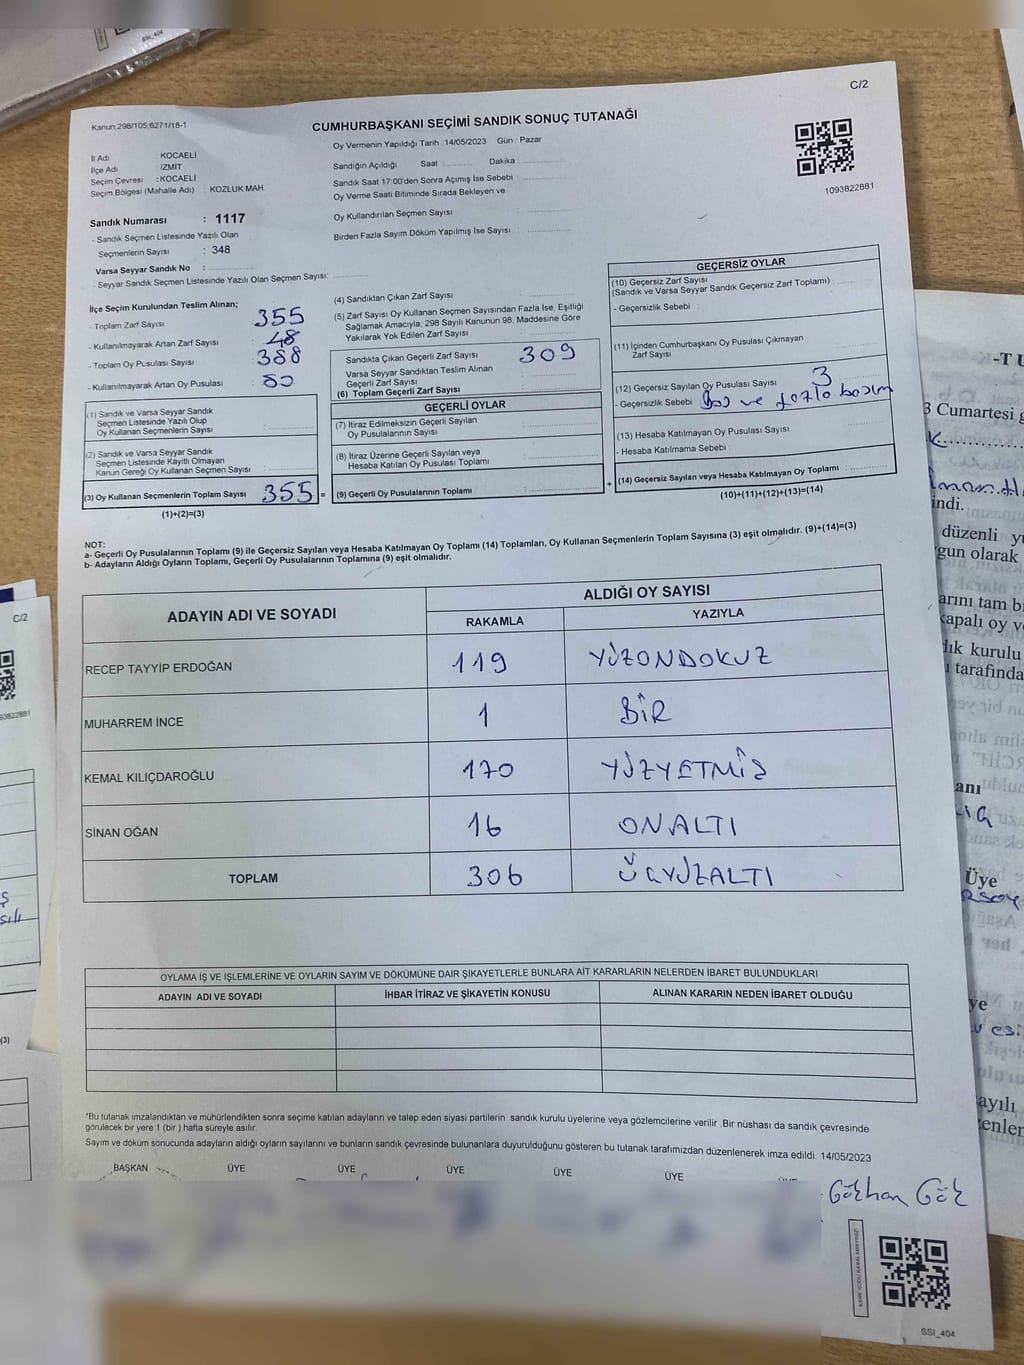 C/2
Kanun:298/105,6271/18-1
CUMHURBAŞKANI SEÇİMİ SANDIK SONUÇ TUTANAĞI
İl Adı : KOCAELİ
İlçe Adı : İZMİT
Seçim Çevresi : KOCAELİ
Seçim Bölgesi (Mahalle Adı) : KOZLUK MAH.
Sandık Numarası : 1117
- Sandık Seçmen Listesinde Yazılı Olan
Seçmenlerin Sayısı : 348
Varsa Seyyar Sandık No :
- Seyyar Sandık Seçmen Listesinde Yazılı Olan Seçmen Sayısı:
Oy Vermenin Yapıldığı Tarih : 14/05/2023 Gün : Pazar
Sandığın Açıldığı Saat : Dakika :
Sandık Saat 17:00'den Sonra Açımış İse Sebebi :
Oy Verme Saati Bitiminde Sırada Bekleyen ve
Oy Kullandırılan Seçmen Sayısı :
Birden Fazla Sayım Döküm Yapılmış İse Sayısı :
1093822881
İlçe Seçim Kurulundan Teslim Alınan;
- Toplam Zarf Sayısı : 355
- Kullanılmayarak Artan Zarf Sayısı : 48
- Toplam Oy Pusulası Sayısı : 388
- Kullanılmayarak Artan Oy Pusulası :
(1) Sandık ve Varsa Seyyar Sandık
Seçmen Listesinde Yazılı Olup
Oy Kullanan Seçmenlerin Sayısı :
(2) Sandık ve Varsa Seyyar Sandık
Seçmen Listesinde Kayıtlı Olmayan
Kanun Gereği Oy Kullanan Seçmen Sayısı :
(3) Oy Kullanan Seçmenlerin Toplam Sayısı 355 =
(1)+(2)=(3)
(4) Sandıktan Çıkan Zarf Sayısı :
(5) Zarf Sayısı Oy Kullanan Seçmen Sayısından Fazla İse, Eşitliği
Sağlamak Amacıyla, 298 Sayılı Kanunun 98. Maddesine Göre
Yakılarak Yok Edilen Zarf Sayısı :
Sandıkta Çıkan Geçerli Zarf Sayısı : 309
Varsa Seyyar Sandıktan Teslim Alınan
Geçerli Zarf Sayısı :
(6) Toplam Geçerli Zarf Sayısı :
GEÇERLİ OYLAR
(7) İtiraz Edilmeksizin Geçerli Sayılan
Oy Pusulalarının Sayısı :
(8) İtiraz Üzerine Geçerli Sayılan veya
Hesaba Katılan Oy Pusulası Toplamı :
(9) Geçerli Oy Pusulalarının Toplamı : +
GEÇERSİZ OYLAR
(10) Geçersiz Zarf Sayısı
(Sandık ve Varsa Seyyar Sandık Geçersiz Zarf Toplamı) :
- Geçersizlik Sebebi :
(11) İçinden Cumhurbaşkanı Oy Pusulası Çıkmayan
Zarf Sayısı :
(12) Geçersiz Sayılan Oy Pusulası Sayısı : 3
- Geçersizlik Sebebi : Boş ve fazla basım
(13) Hesaba Katılmayan Oy Pusulası Sayısı :
- Hesaba Katılmama Sebebi :
(14) Geçersiz Sayılan veya Hesaba Katılmayan Oy Toplamı :
(10)+(11)+(12)+(13)=(14)
NOT:
a- Geçerli Oy Pusulalarının Toplamı (9) ile Geçersiz Sayılan veya Hesaba Katılmayan Oy Toplamı (14) Toplamları, Oy Kullanan Seçmenlerin Toplam Sayısına (3) eşit olmalıdır. (9)+(14)=(3)
b- Adayların Aldığı Oyların Toplamı, Geçerli Oy Pusulalarının Toplamına (9) eşit olmalıdır.
ADAYIN ADI VE SOYADI ALDIĞI OY SAYISI
RAKAMLA YAZIYLA
RECEP TAYYİP ERDOĞAN 119 YÜZONDOKUZ
MUHARREM İNCE 1 BİR
KEMAL KILIÇDAROĞLU 170 YÜZYETMİŞ
SİNAN OĞAN 16 ONALTI
TOPLAM 306 ÜÇYÜZALTI
OYLAMA İŞ VE İŞLEMLERİNE VE OYLARIN SAYIM VE DÖKÜMÜNE DAİR ŞİKAYETLERLE BUNLARA AİT KARARLARIN NELERDEN İBARET BULUNDUKLARI
ADAYIN ADI VE SOYADI İHBAR İTİRAZ VE ŞİKAYETİN KONUSU ALINAN KARARIN NEDEN İBARET OLDUĞU
"Bu tutanak imzalandıktan ve mühürlendikten sonra seçime katılan adayların ve talep eden siyasi partilerin sandık kurulu üyelerine veya gözlemcilerine verilir .Bir nüshası da sandık çevresinde
görülecek bir yere 1 (bir ) hafta süreyle asılır.
Sayım ve döküm sonucunda adayların aldığı oyların sayılarını ve bunların sandık çevresinde bulunanlara duyurulduğunu gösteren bu tutanak tarafımızdan düzenlenerek imza edildi. 14/05/2023
BAŞKAN ÜYE ÜYE ÜYE ÜYE ÜYE
Gökhan Gök
KARE KODU KARALAMAYINIZ!
SSI_404
SSI_404
C/2
93822881
(3)
-T U
3 Cumartesi g
indi.
düzenli yü
gun olarak
arını tam bi
kapalı oy ve
dık kurulu
tarafında
anı
Üye
ye
ayılı
enler